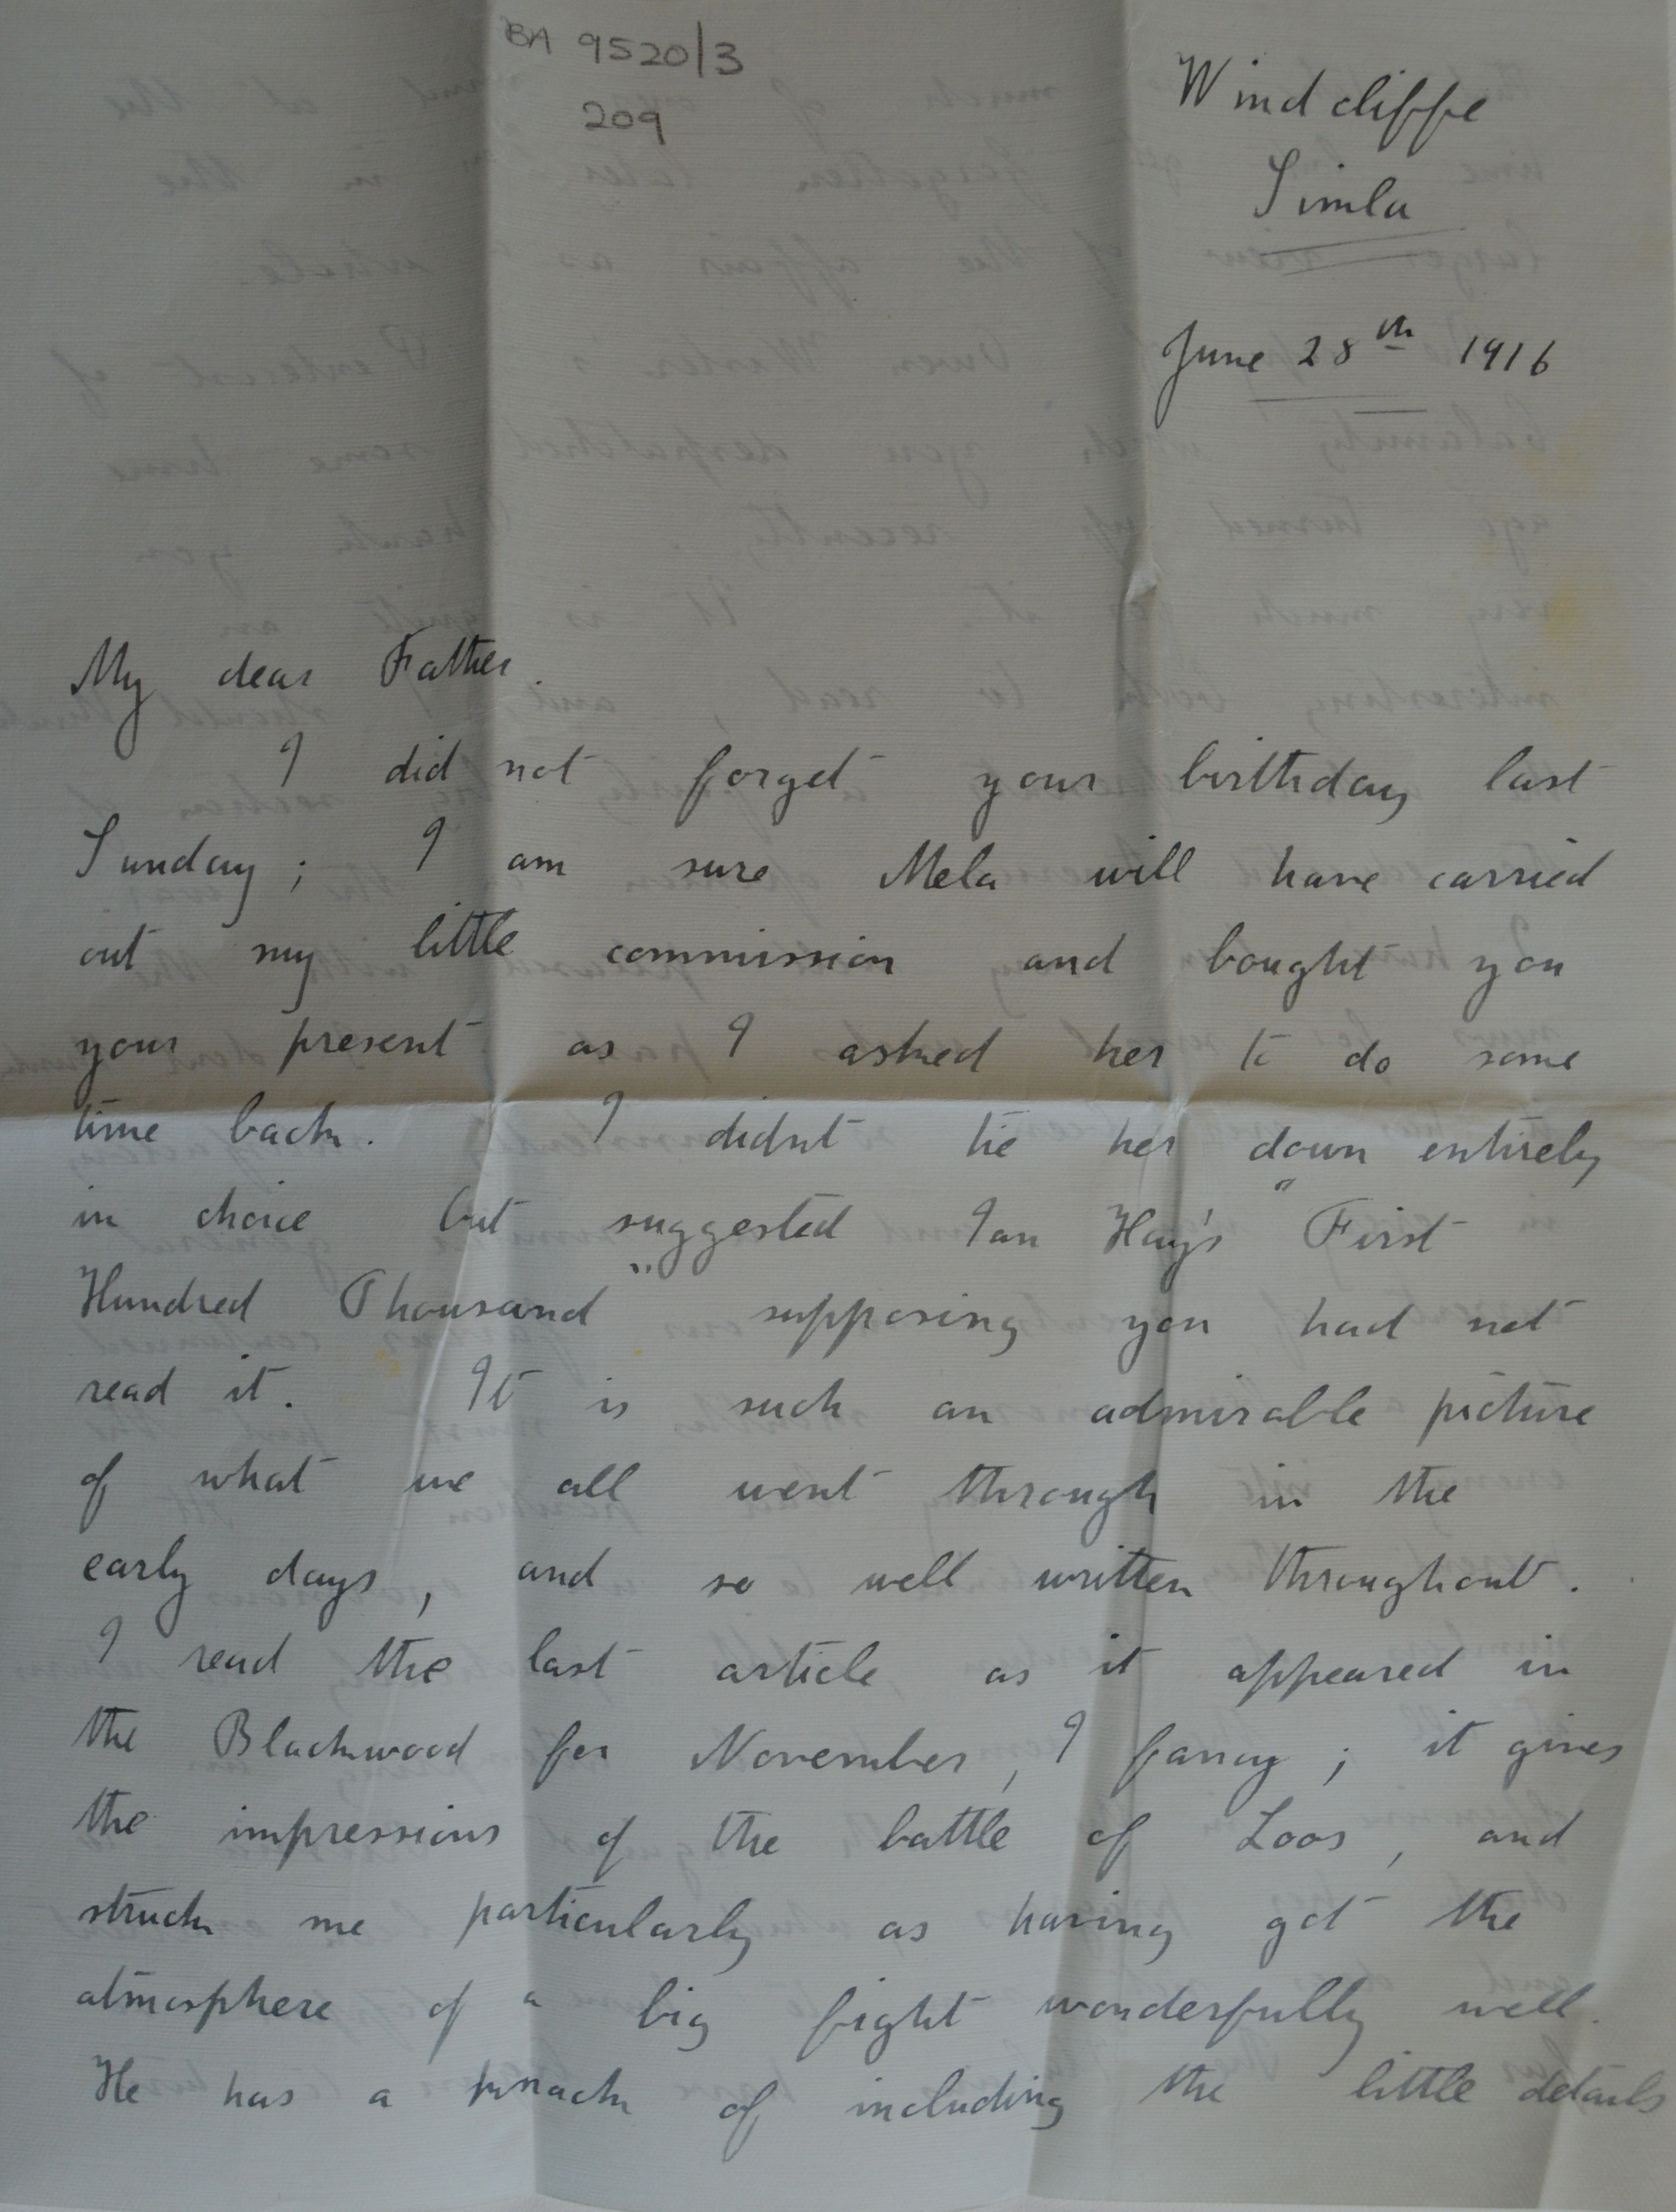 BA 9520/3
209
Windcliffe
Simla
June 28th 1916
My dear Father
I did not forget your birthday last
Sunday; I am sure Mela will have carried
out my little commission and bought you
your present as I asked her to do some
time back. I didnt tie her down entirely
in choice but suggested Ian Hay's "First
Hundred Thousand" supposing you had not
read it. It is such an admirable picture
of what we all went through in the
early days, and so well written throughout.
I read the last article as it appeared in
the Blackwood for November, I fancy; it gives
the impressions of the battle of Loos, and
struck me particularly as having got the
atmosphere of a big fight wonderfully well.
He has a knack of including the little details